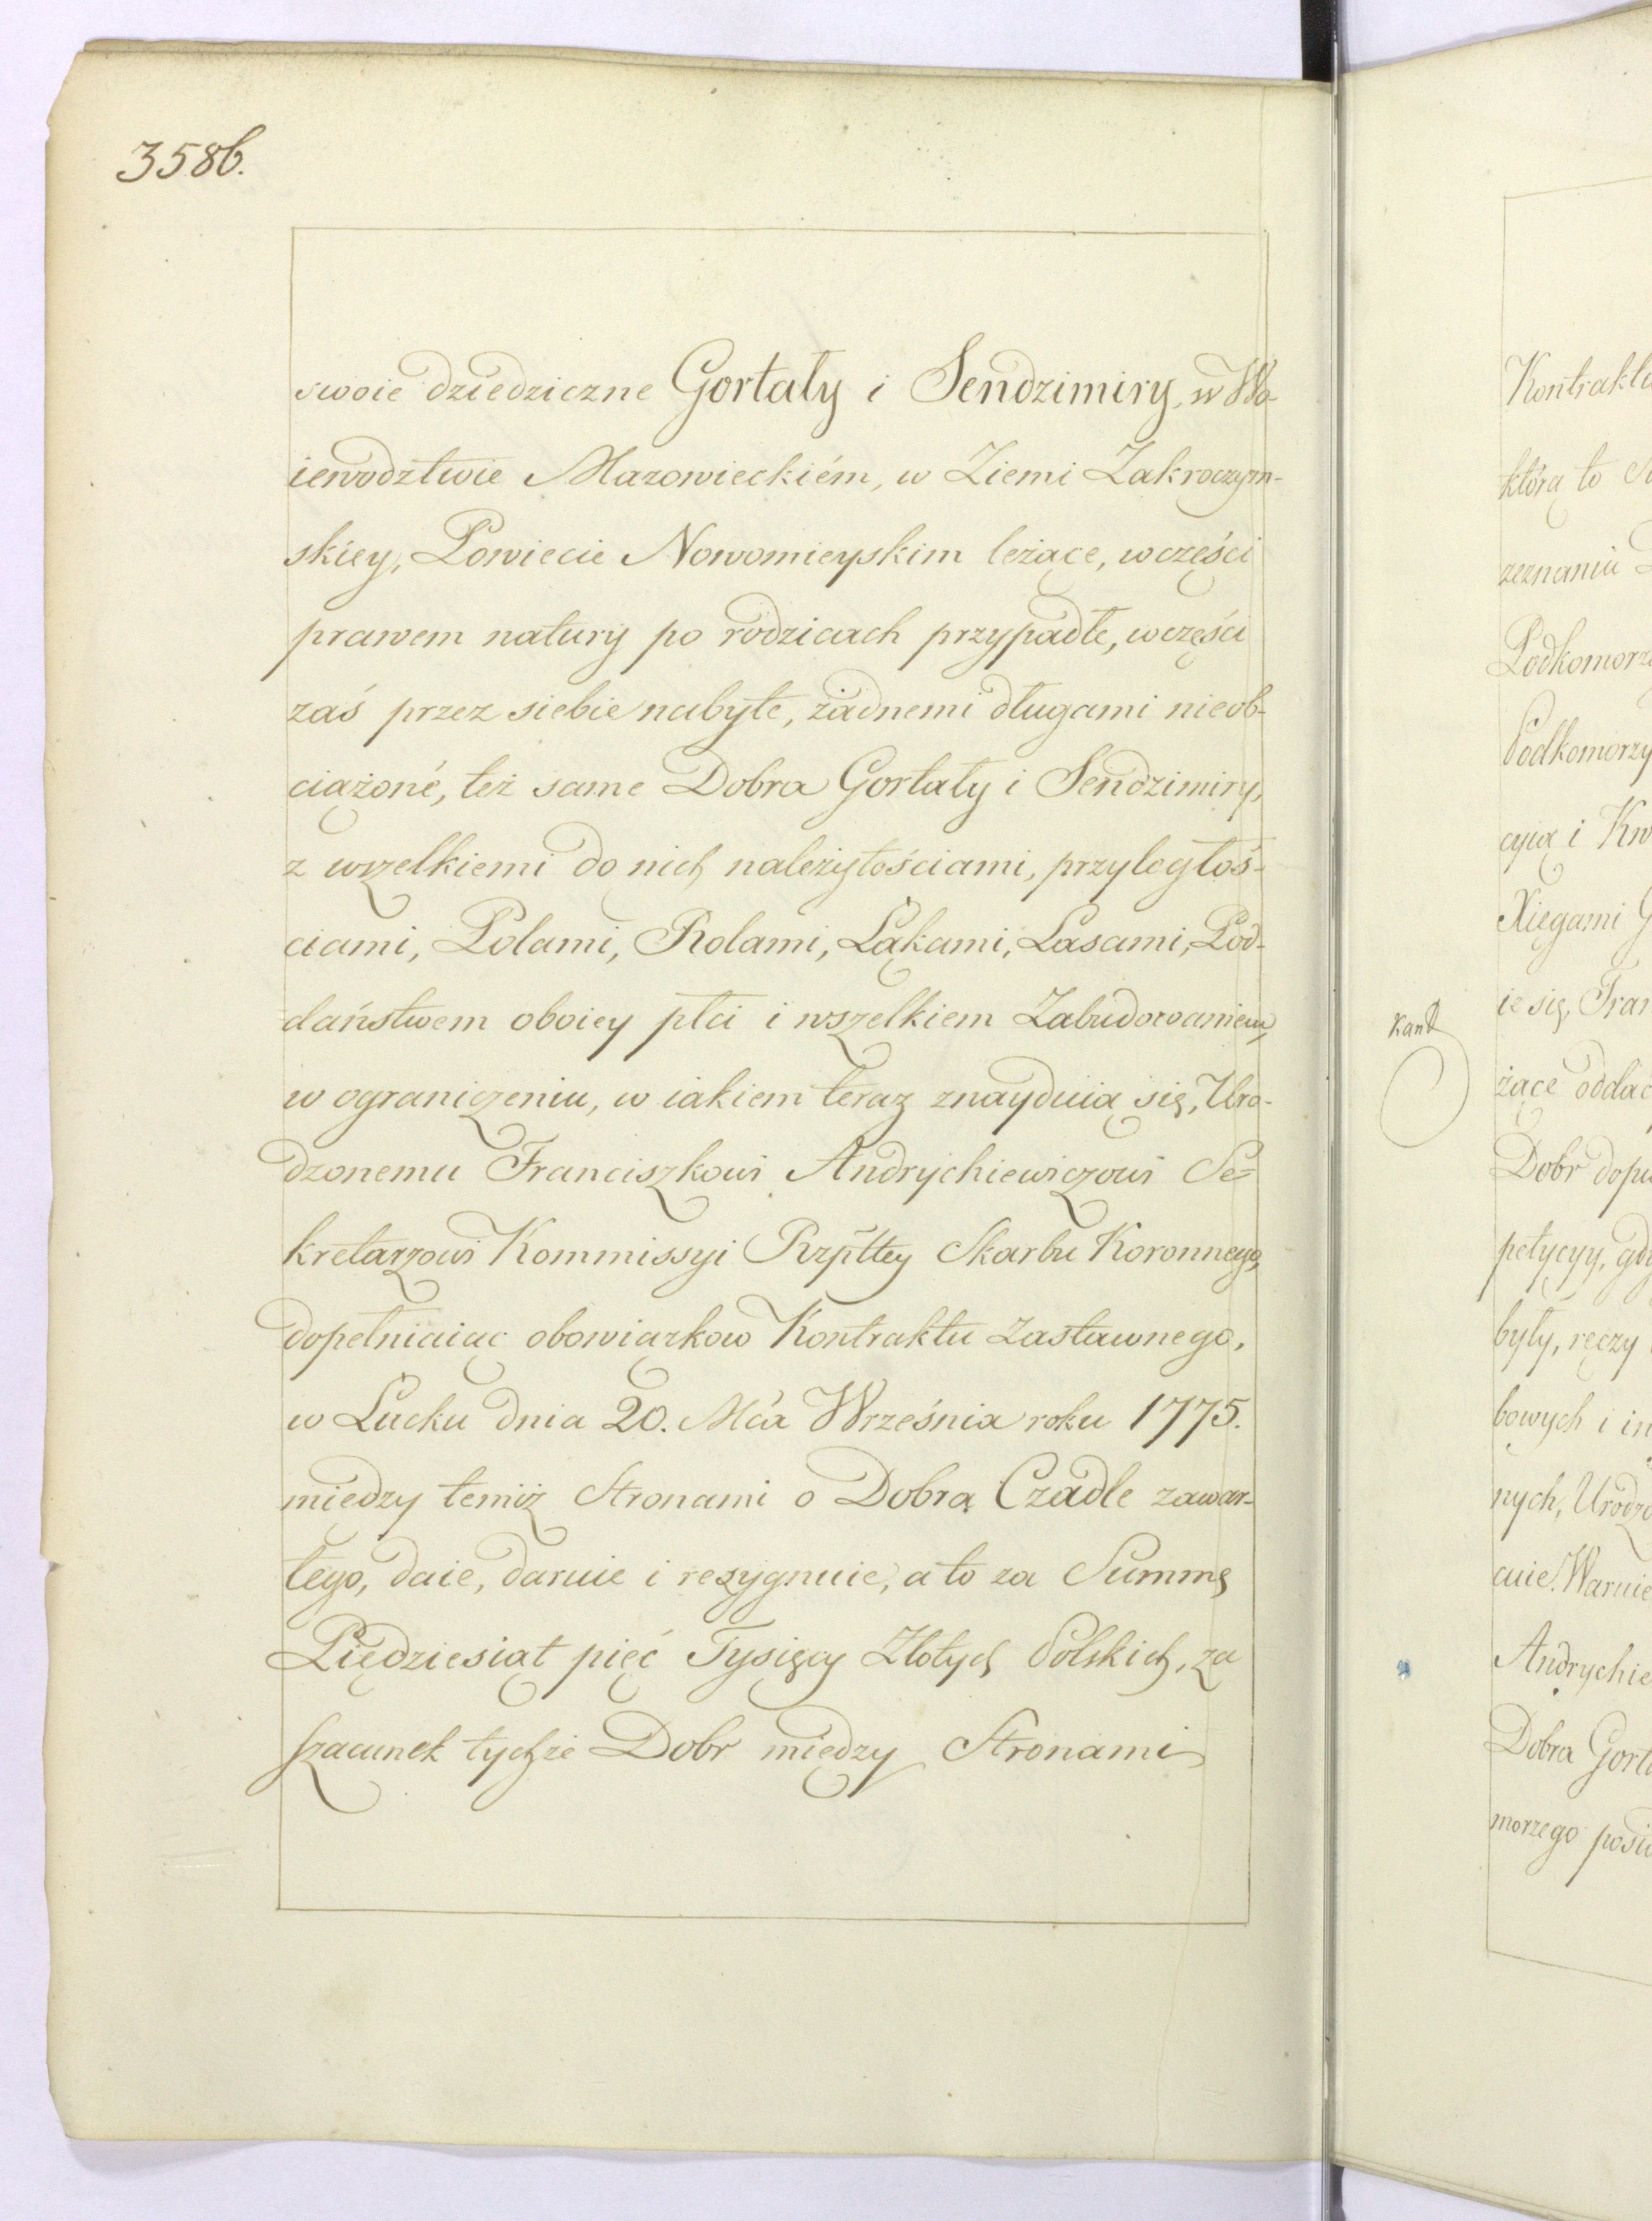 3586.
swoie dziedziczne Gortaty i Sendzimiry, w Wo-
iewodztwie Mazowieckiém, w Ziemi Zakroczym-
skiey, Powiecie Nowomieyskim leżące, w części
prawem natury po rodzicach przypadłe, w części
zaś przez siebie nabyte, żadnemi długami nieob-
ciążoné, też same Dobra Gortaty i Sendzimiry,
z wszelkiemi do nich należytościami, przyległoś-
ciami, Polami, Rolami, Łąkami, Lasami, Pod-
daństwem oboiey płci i wszelkiem Zabudowaniem,
w ograniczeniu, w iakiem teraz znayduią się, Uro-
dzonemu Franciszkowi Andrychiewiczowi Se=
kretarzowi Kommissyi Rzpltey Skarbu Koronnego,
dopełniaiąc obowiązkow Kontraktu Zastawnego,
w Łucku dnia 20. Mca Września roku 1775.
między temiż Stronami o Dobra Czadle zawar-
tego, daie, daruie i rezygnuie, a to za Summę
Piędziesiąt pięć Tysięcy Złotych Polskich, za
szacunek tychże Dobr między Stronami
Kontraktu
którą to
zeznaniu
Podkomorz
Podkomorzy
cyią i Kw
Xięgami G
ie się, Fran
Kant
żące oddać
Dobr dopu
petycyy, gd
były, ręczy
bowych i in
nych, Urodzo
cuie. Waruie
Andrychie
Dobra Gorta
morzego posia